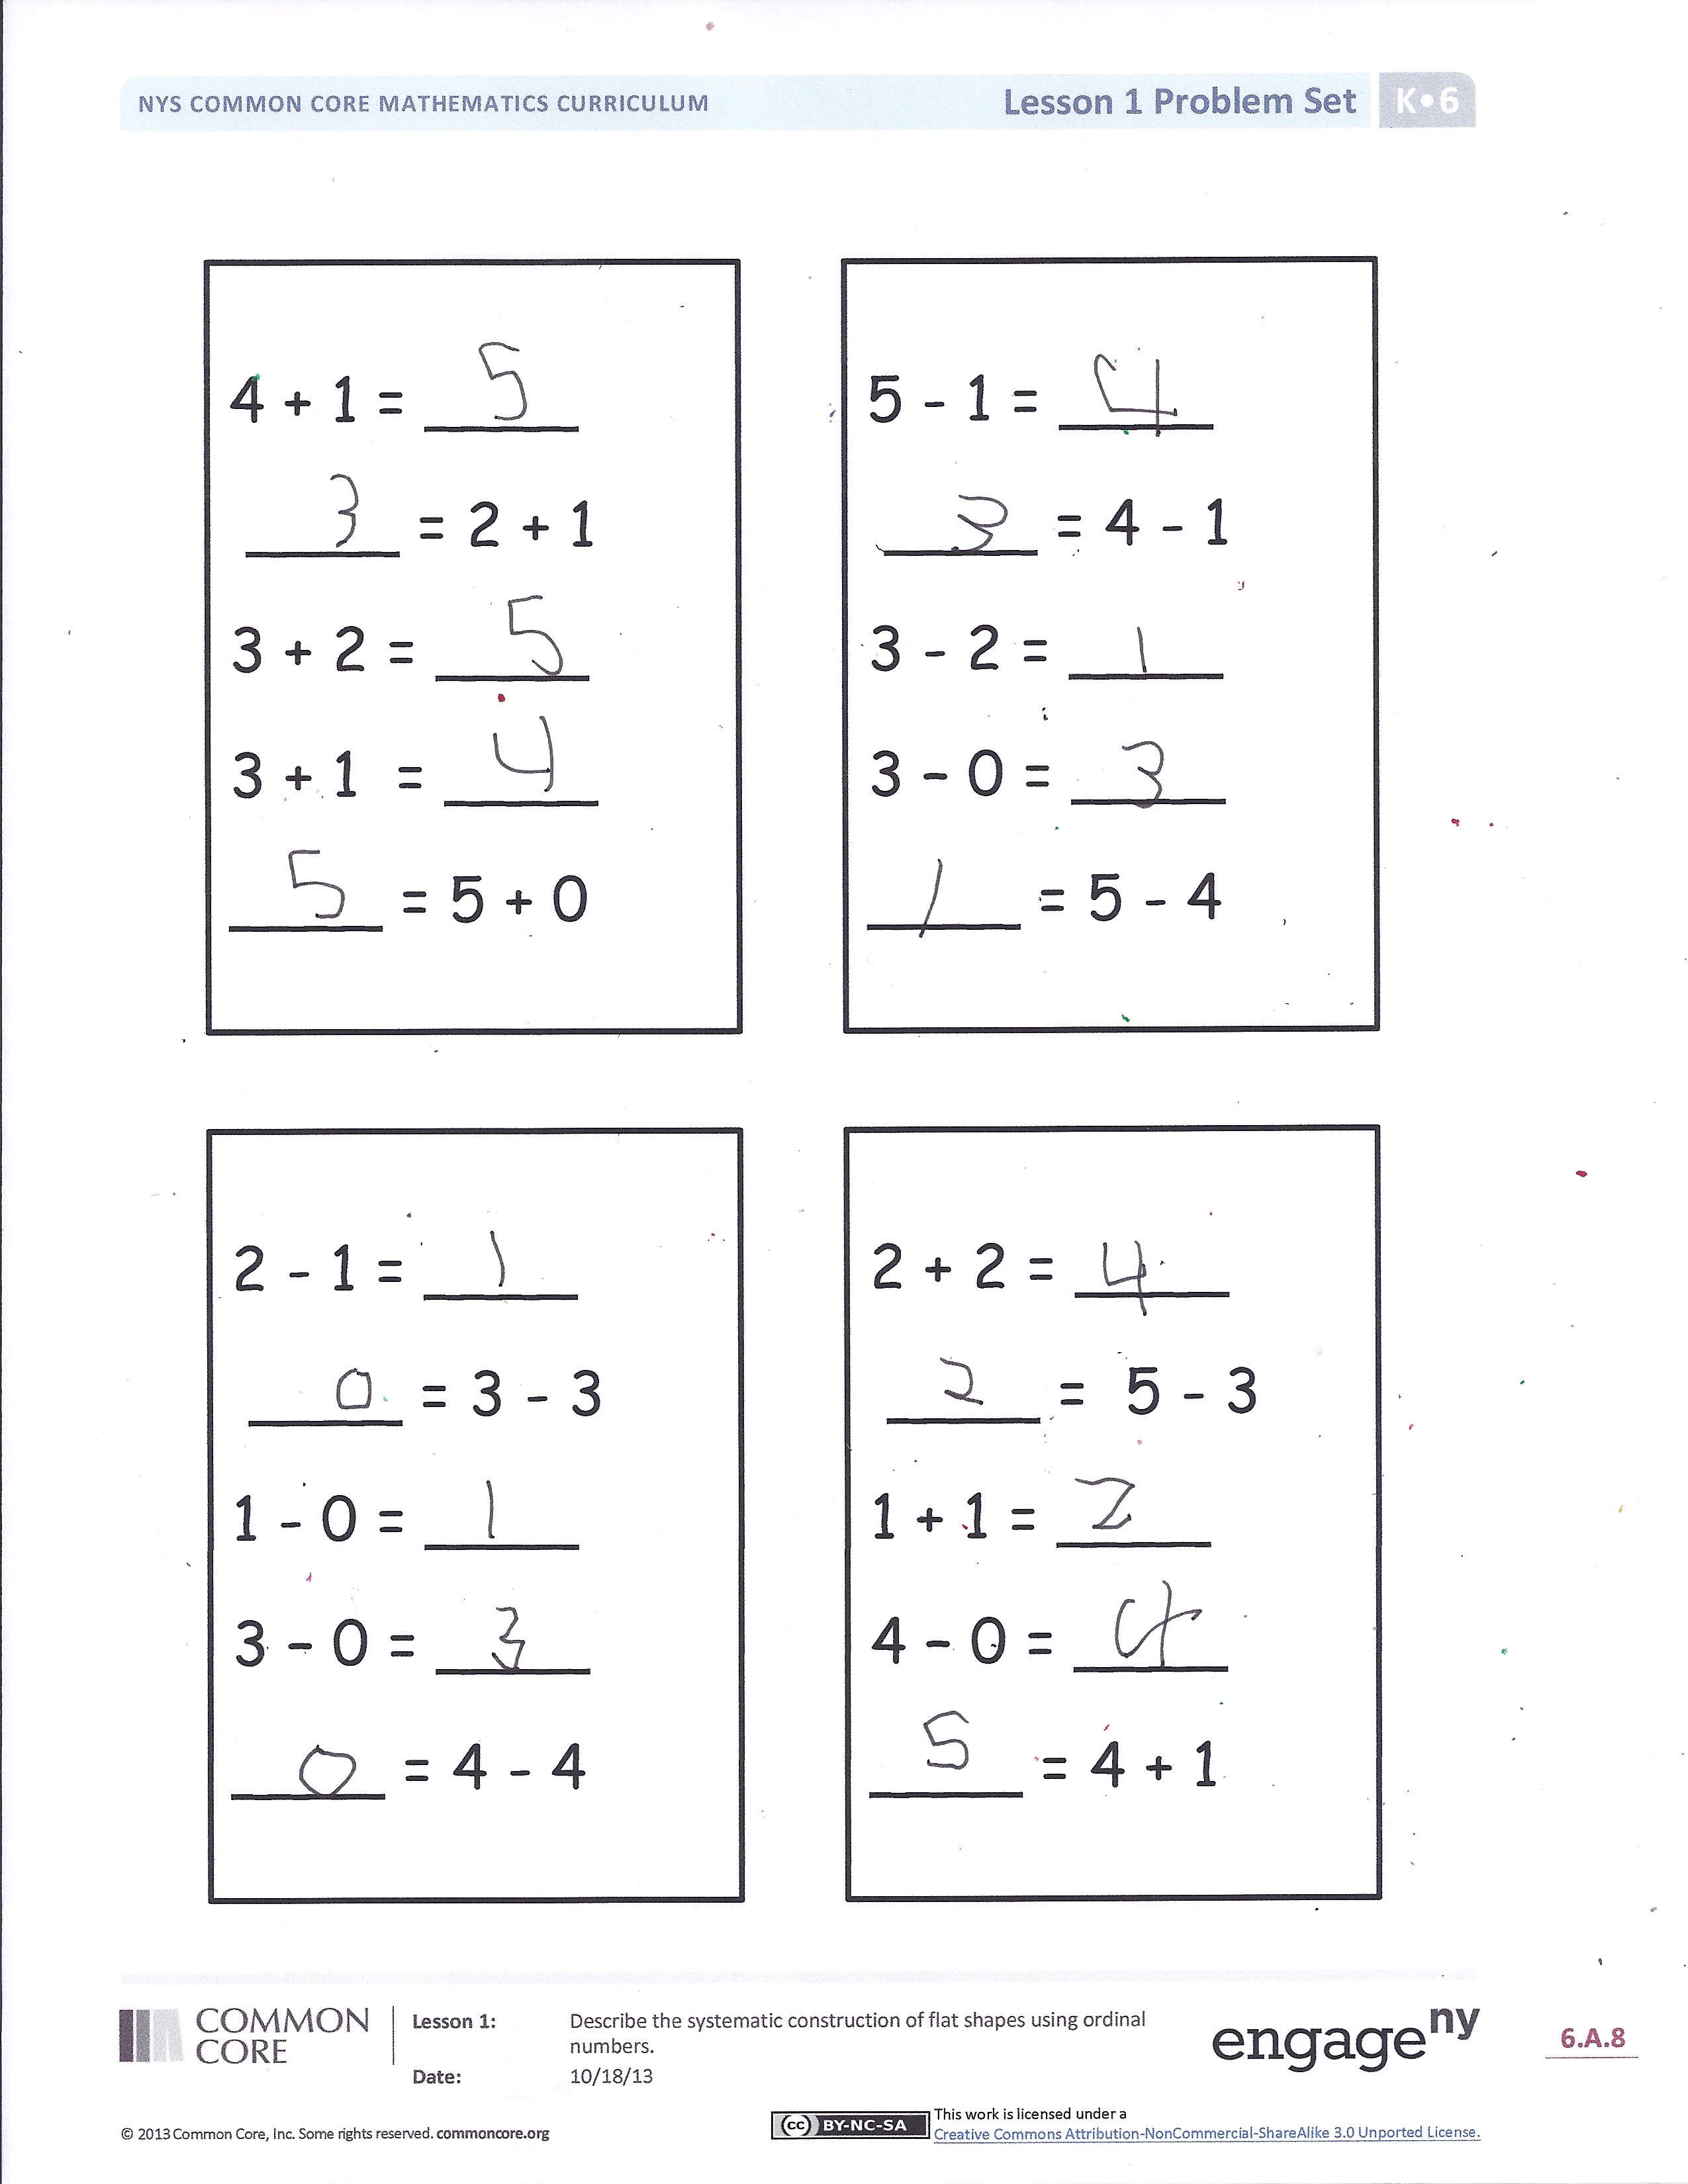 NYS COMMON CORE MATHEMATICS CURRICULUM
Lesson 1 Problem Set
K•6
4 + 1 = 5
3 = 2 + 1
3 + 2 = 5
3 + 1 = 4
5 = 5 + 0
5 - 1 = 4
3 = 4 - 1
3 - 2 = 1
3 - 0 = 3
1 = 5 - 4
2 - 1 = 1
0 = 3 - 3
1 - 0 = 1
3 - 0 = 3
0 = 4 - 4
2 + 2 = 4
2 = 5 - 3
1 + 1 = 2
4 - 0 = 4
5 = 4 + 1
COMMON
CORE
Lesson 1: Describe the systematic construction of flat shapes using ordinal
numbers.
Date: 10/18/13
engageny
6.A.8
© 2013 Common Core, Inc. Some rights reserved. commoncore.org
cc BY-NC-SA
This work is licensed under a
Creative Commons Attribution-NonCommercial-ShareAlike 3.0 Unported License.